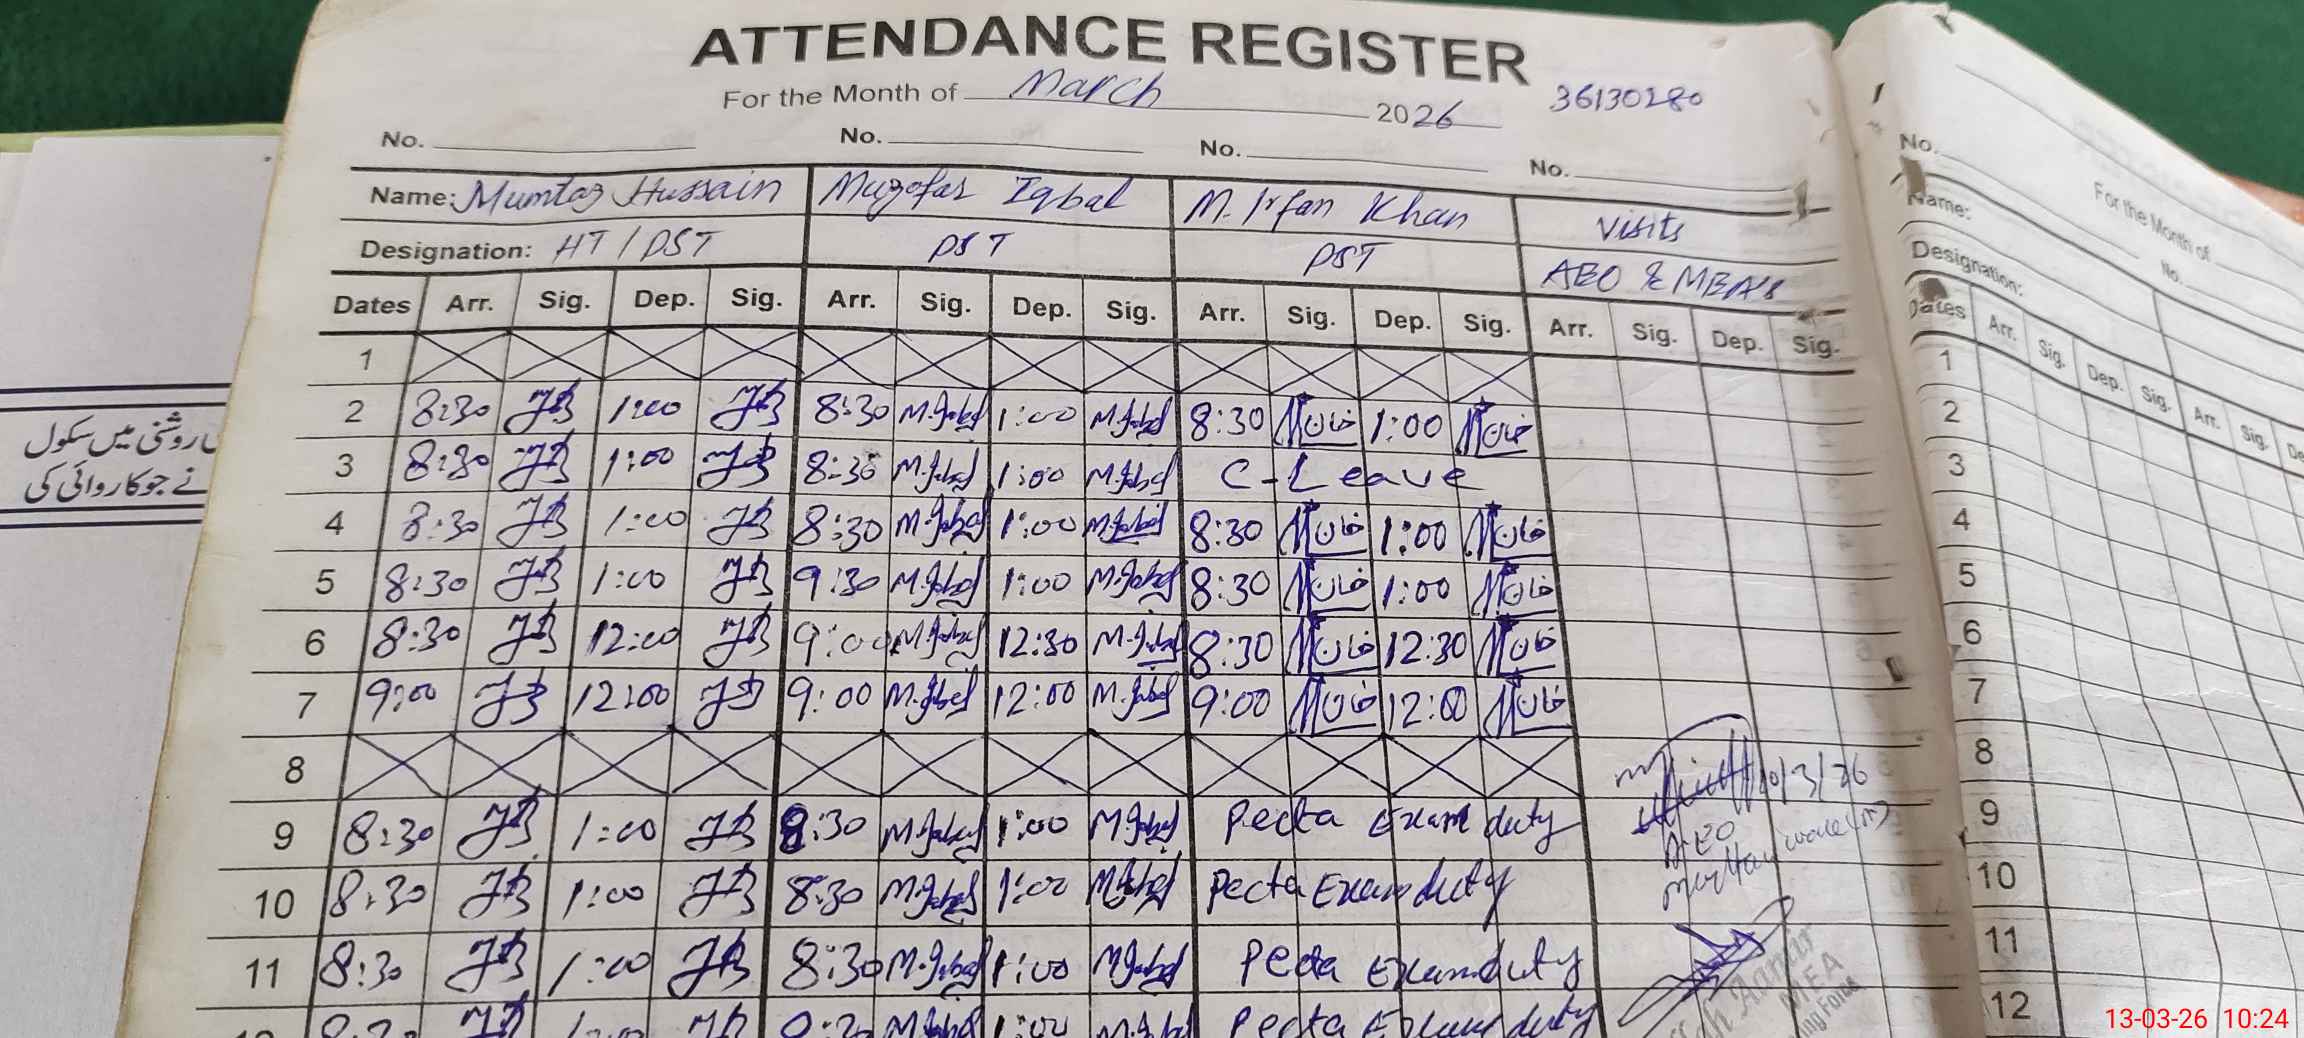 ATTENDANCE REGISTER
For the Month of March 2026 36130280
No. No. No. No.
Name: Mumtaz Hussain Muzafar Iqbal M. Irfan Khan Visits
Designation: HT / PST PST PST AEO & MEA's
Dates Arr. Sig. Dep. Sig. Arr. Sig. Dep. Sig. Arr. Sig. Dep. Sig. Arr. Sig. Dep. Sig.
1
2 8:30 1:00 8:30 M.Iqbal 1:00 M.Iqbal 8:30 خان 1:00 خان
3 8:30 1:00 8:30 M.Iqbal 1:00 M.Iqbal C-Leave
4 8:30 1:00 8:30 M.Iqbal 1:00 M.Iqbal 8:30 خان 1:00 خان
5 8:30 1:00 9:30 M.Iqbal 1:00 M.Iqbal 8:30 خان 1:00 خان
6 8:30 12:00 9:00 M.Iqbal 12:30 M.Iqbal 8:30 خان 12:30 خان
7 9:00 12:00 9:00 M.Iqbal 12:00 M.Iqbal 9:00 خان 12:00 خان
8
9 8:30 1:00 8:30 M.Iqbal 1:00 M.Iqbal Pecta Exam duty
10/3/26
AEO
10 8:30 1:00 8:30 M.Iqbal 1:00 M.Iqbal Pecta Exam duty
11 8:30 1:00 8:30 M.Iqbal 1:00 M.Iqbal Pecta Exam duty
M.E.A
Pecta Exam duty
روشنی میں سکول
نے جو کاروائی کی
For the Month of
No. No.
Name:
Designation:
Dates Arr. Sig. Dep. Sig. Arr. Sig.
1
2
3
4
5
6
7
8
9
10
11
12
13-03-26 10:24